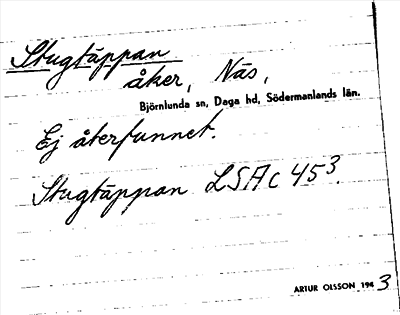 Stugtäppan
åker, Näs,
Björnlunda sn, Daga hd, Södermanlands län.
Ej återfunnet.
Stugtäppan LSA C 45³.
ARTUR OLSSON 1943